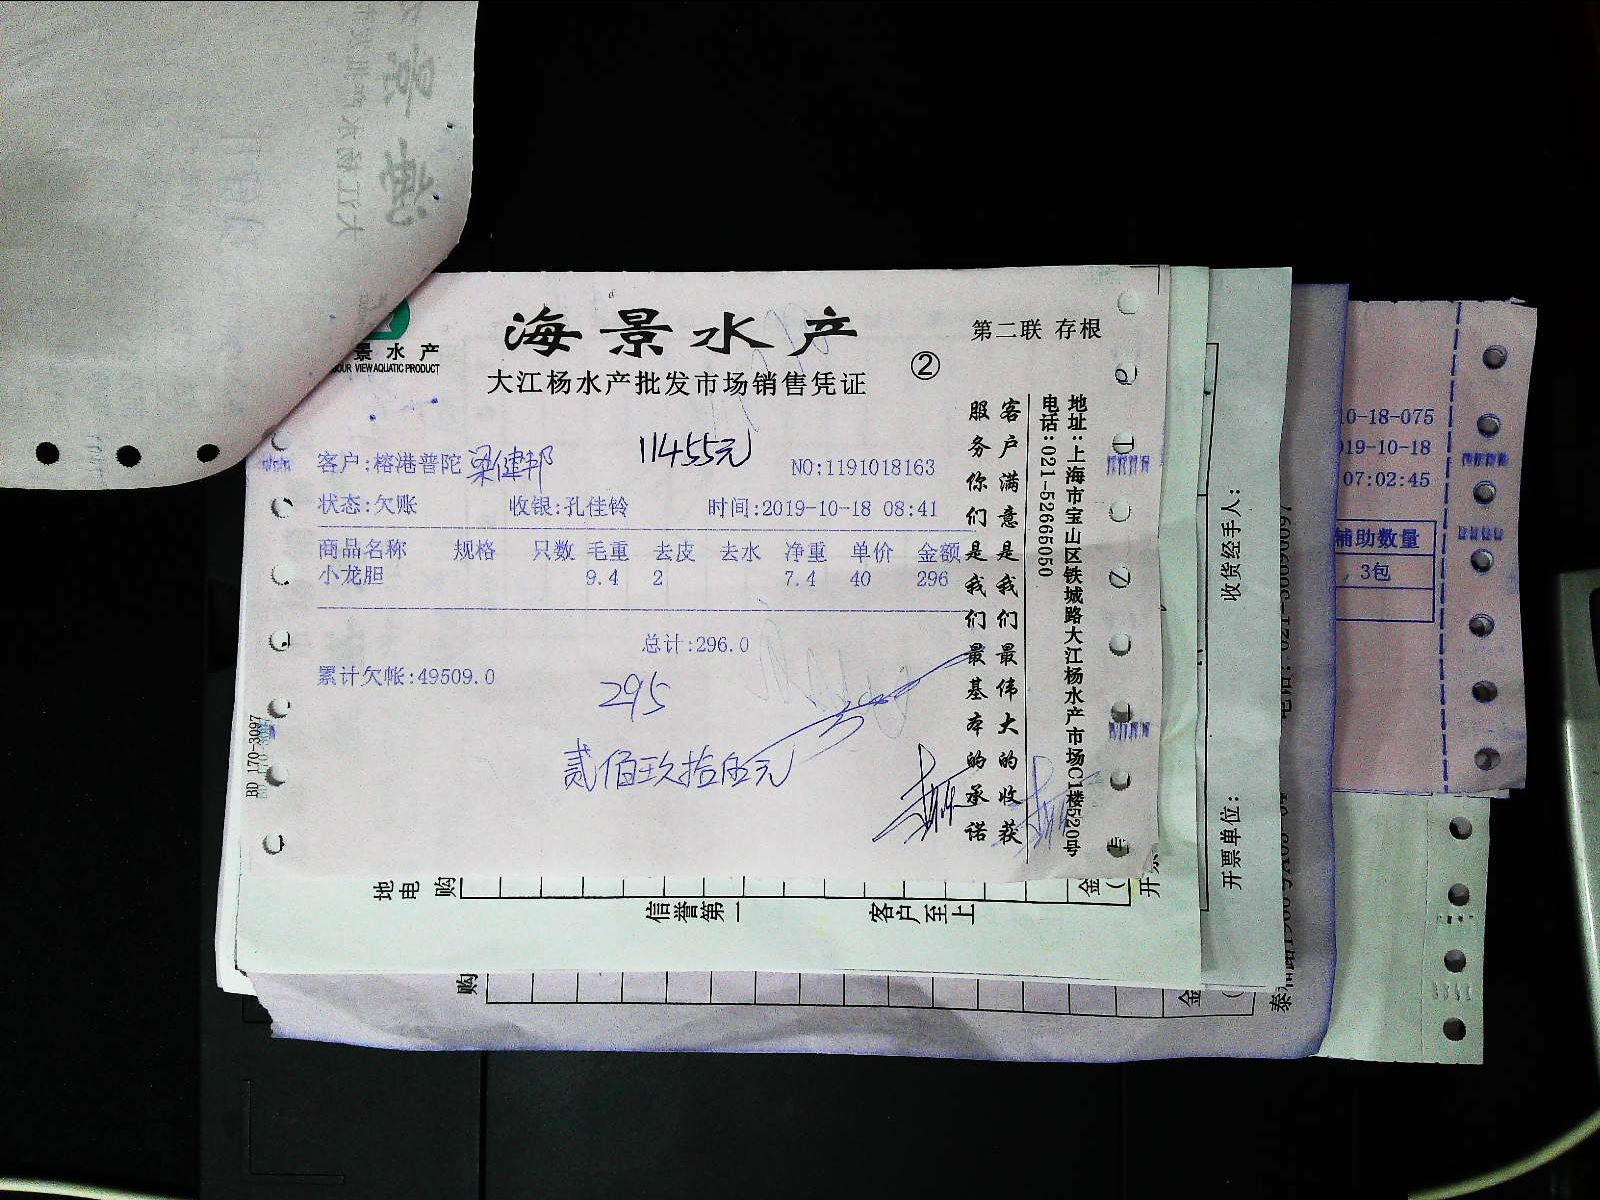 海景水产
大江杨水产批发市场销售凭证
②
第二联 存根
景水产
OUR VIEW AQUATIC PRODUCT
客户:榕港普陀 梁健邦
11455元
NO:1191018163
状态:欠账 收银:孔佳铃 时间:2019-10-18 08:41
商品名称 规格 只数 毛重 去皮 去水 净重 单价 金额
小龙胆 9.4 2 7.4 40 296
总计:296.0
累计欠帐:49509.0
295
贰佰玖拾伍元
客户满意是我们最伟大的收获
服务你们是我们最基本的承诺
地址:上海市宝山区铁城路大江杨水产市场C1楼520号
电话:021-52665050
BD 170-3097
收货经手人:
开票单位:
10-18-075
019-10-18
07:02:45
辅助数量
3包
地
电
购
信誉第一
客户至上
金
开票
购
金